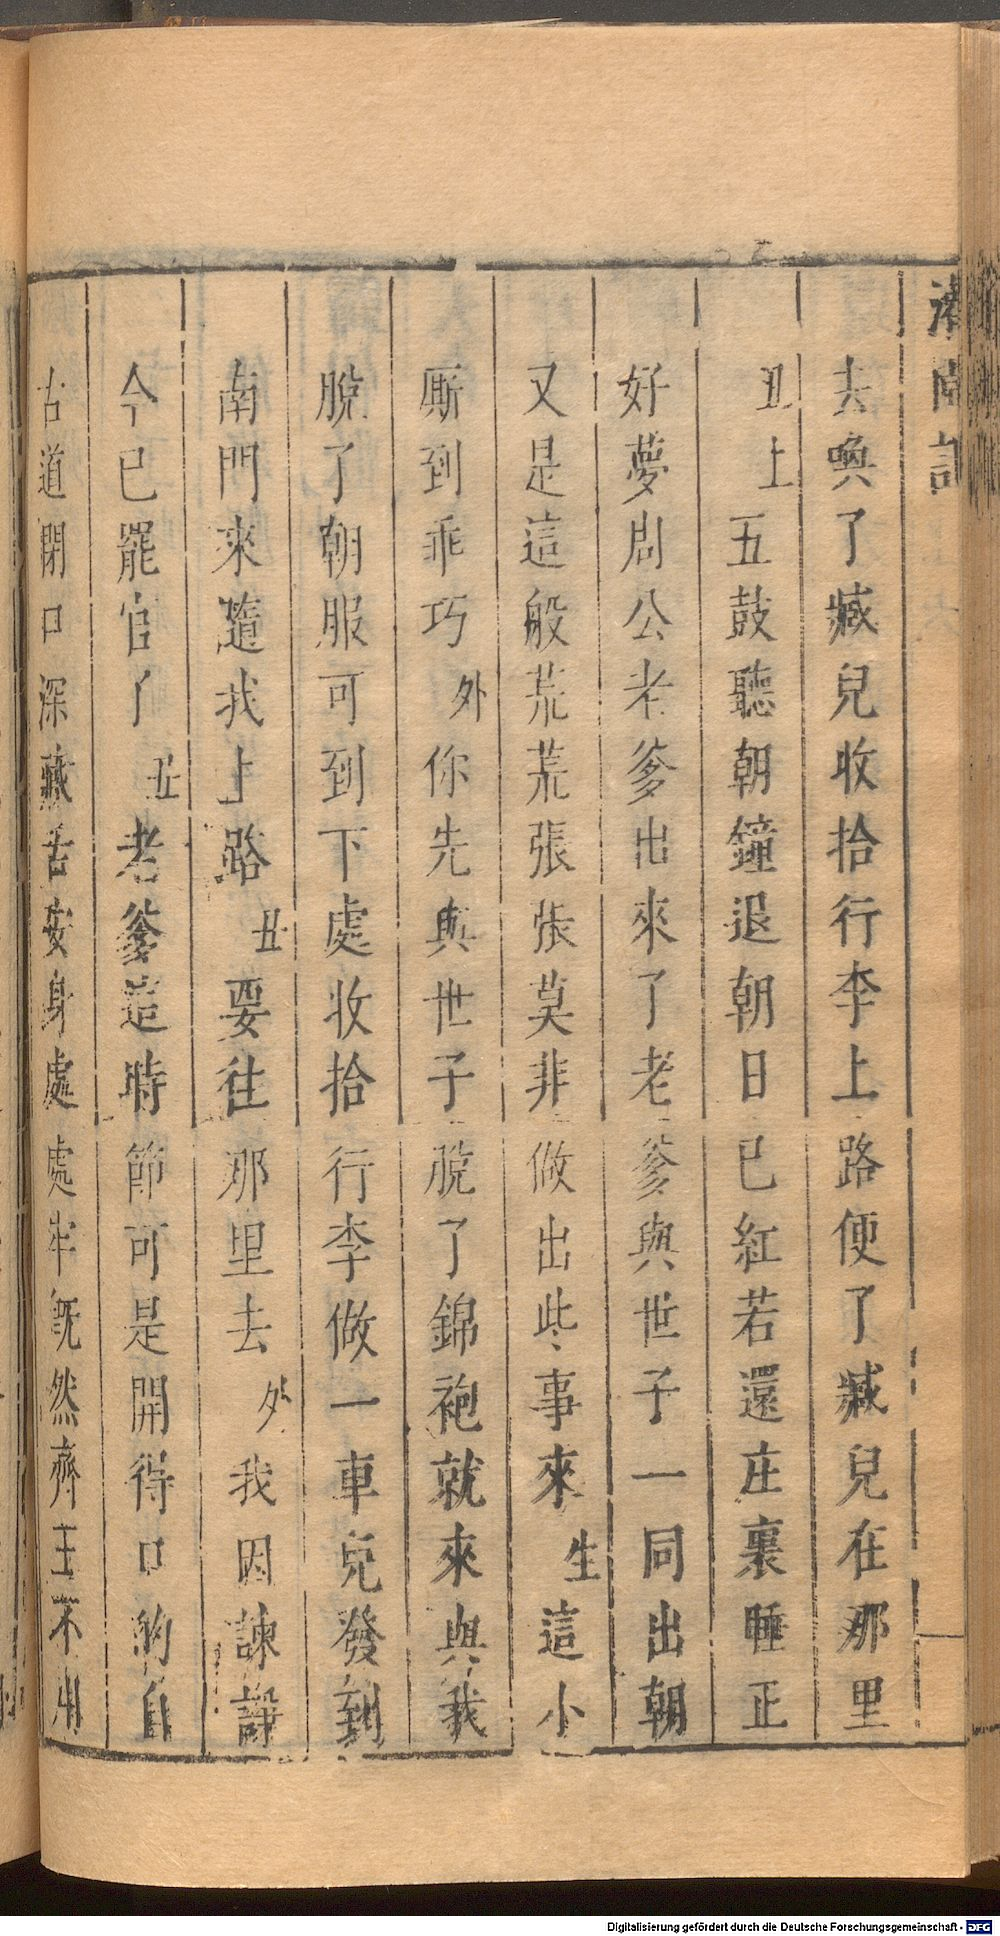 去喚了臧兒收拾行李上路便了臧兒在那里
丑上五鼓聽朝鐘退朝日已紅若還庄裏睡正
好夢周公老爹出來了老爹與世子一同出朝
又是這般荒荒張張莫非做出些事來生這小
厮到乖巧外你先與世子脫了錦袍就來與我
脫了朝服可到下處收拾行李做一車兒發到
南門來隨我上路丑要往那里去外我因諫諍
今已罷官了丑老爹這時節可是開得口的自
古道閉口深藏舌安身處處牢旣然齊王不用
Digitalisierung gefördert durch die Deutsche Forschungsgemeinschaft - DFG